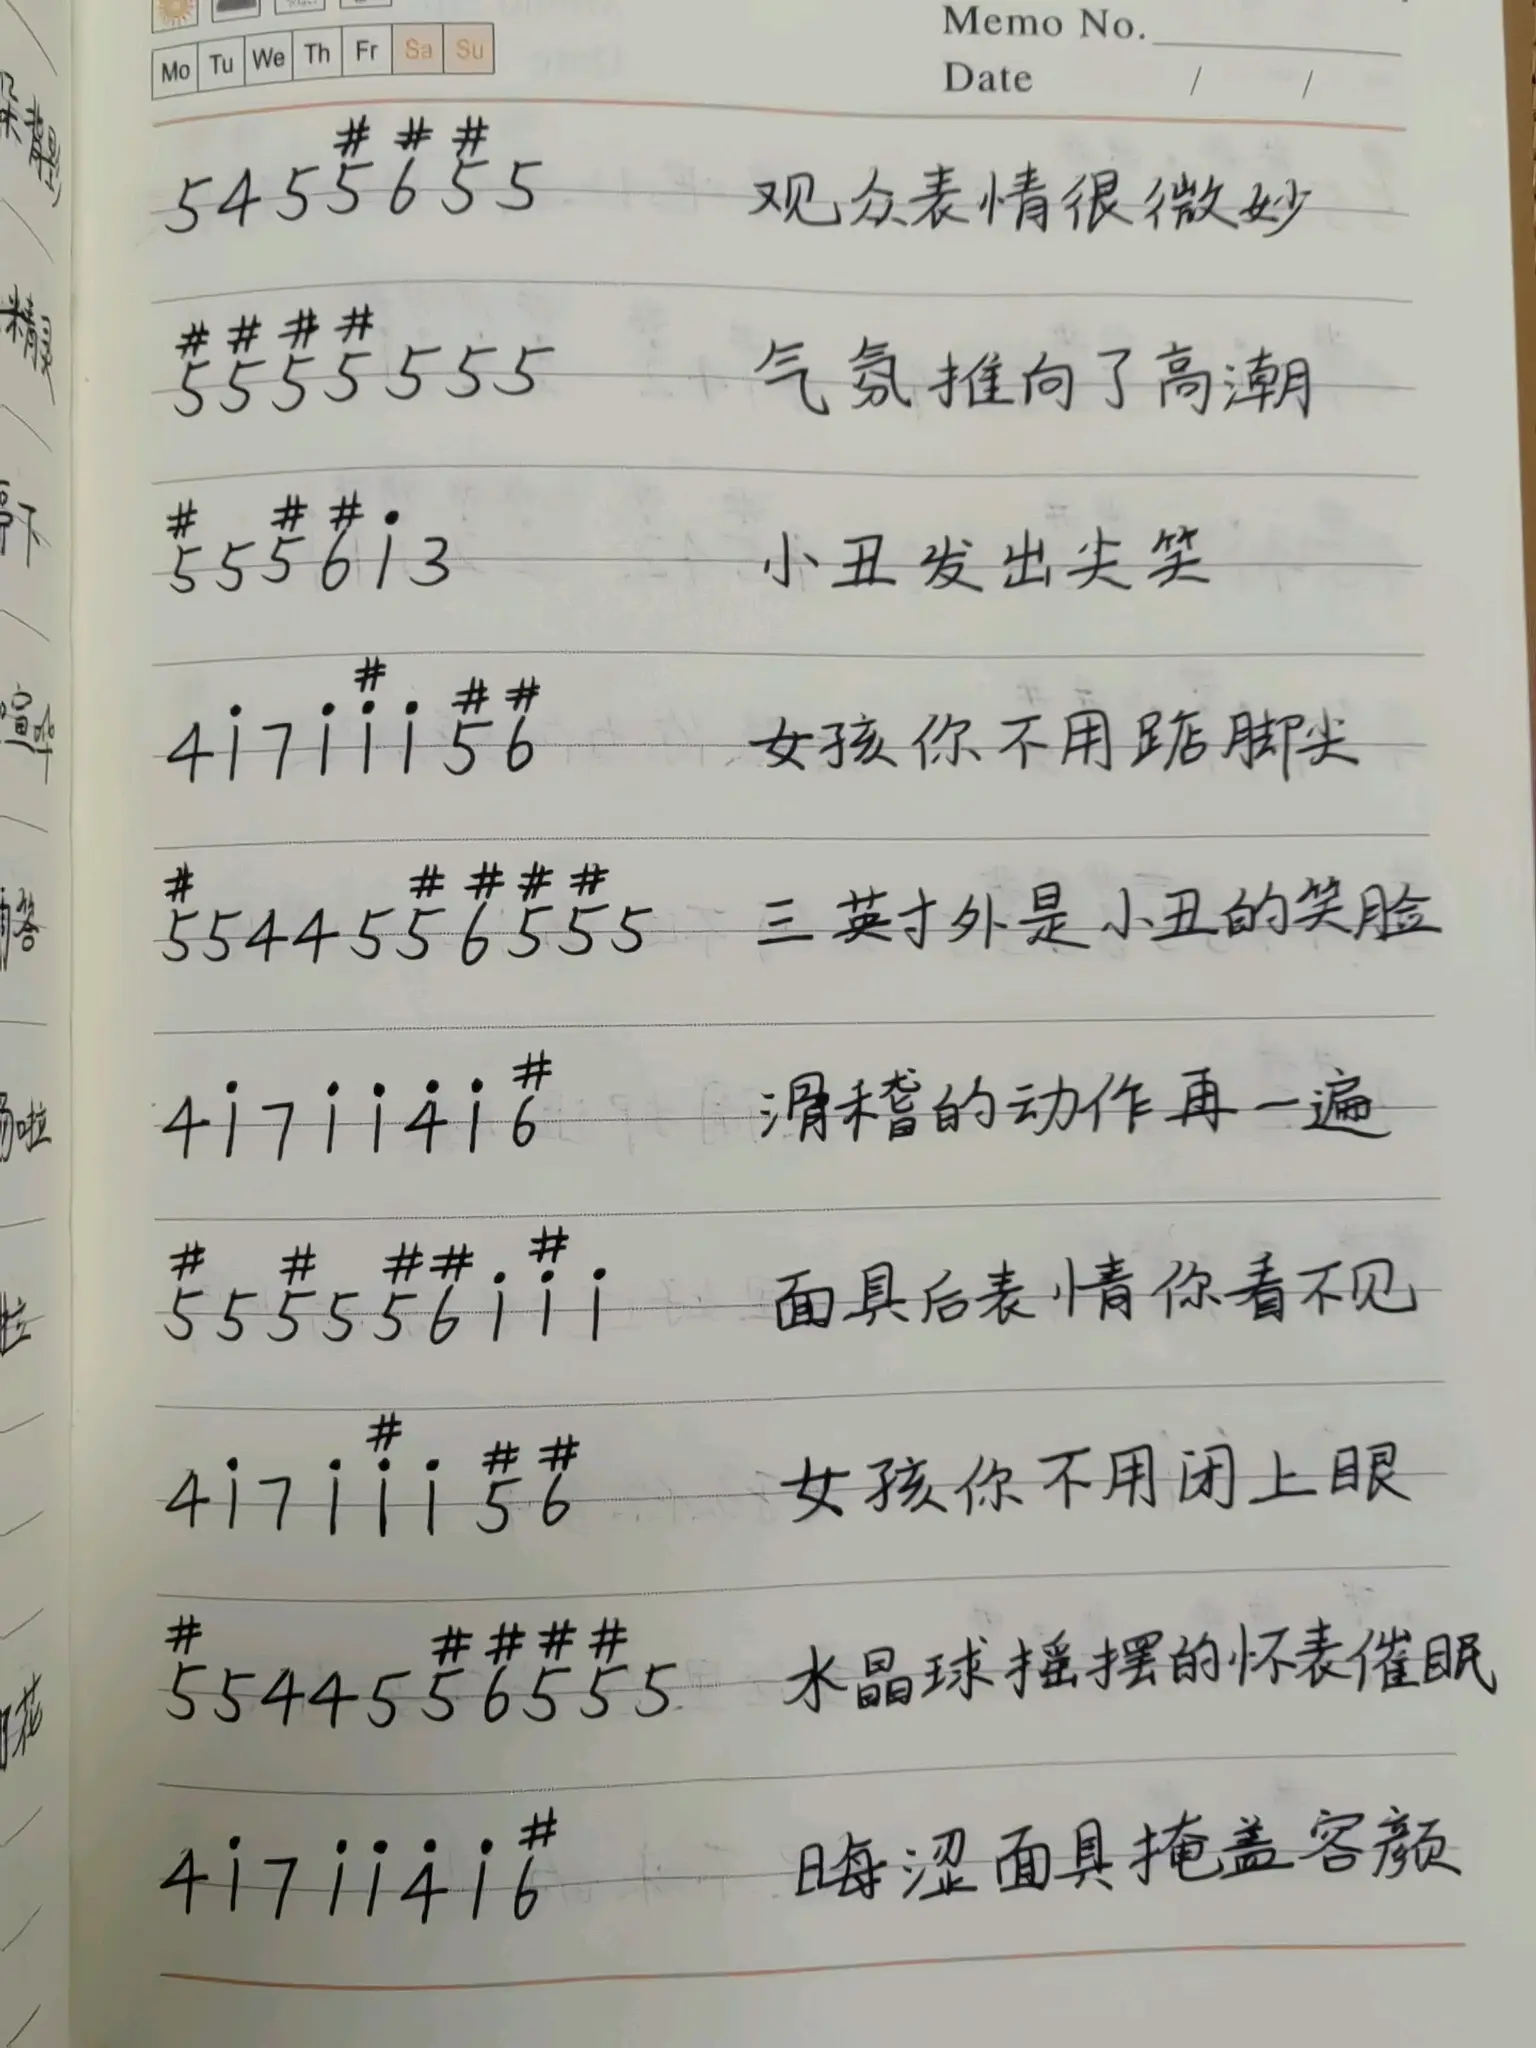 Memo No.
Mo Tu We Th Fr Sa Su
Date / /
5 4 5 #5 #6 #5 5 观众表情很微妙
#5 #5 #5 #5 5 5 5 气氛推向了高潮
#5 5 #5 #6 i 3 小丑发出尖笑
4 i 7 i #i i #5 #6 女孩你不用踮脚尖
#5 5 4 4 5 #5 #6 #5 #5 5 三英寸外是小丑的笑脸
4 i 7 i i 4̇ i #6 滑稽的动作再一遍
#5 5 #5 5 #5 #6 i #i i 面具后表情你看不见
4 i 7 i #i i #5 #6 女孩你不用闭上眼
#5 5 4 4 5 #5 #6 #5 #5 5 水晶球摇摆的怀表催眠
4 i 7 i i 4̇ i #6 晦涩面具掩盖容颜